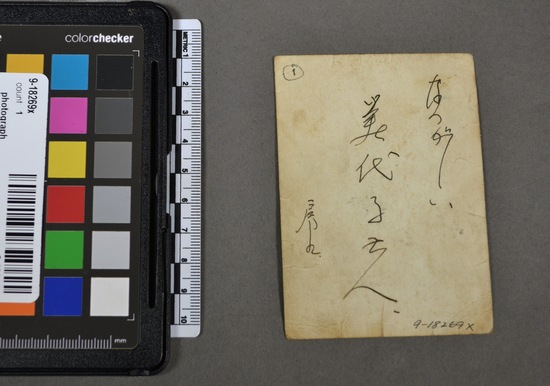 colorchecker
9-18269x
count 1
photograph
METRIC 1
2
3
4
5
6
7
8
9
10
mm
1
なつかしい
美代子
9-18269X